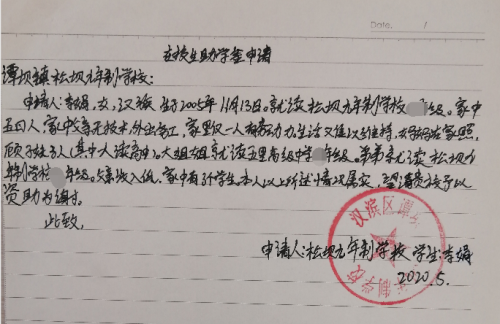 Date. /
在校生助学金申请
谭坝镇松坝九年制学校:
申请人:李娟,女,汉族 生于2005年11月13日,就读松坝九年制学校 年级。家中
五口人,家中父亲无技术,外出务工,家里仅一人有劳动力生活又值以维持,妈妈在家照
顾子妹三人(其中大读高中),大姐姐就读五里高级中学 年级。弟弟就读松坝九
年制学校 年级。务农收入低,家中有 学生本人以上所述情况属实,望请贵校予以
资助为谢付
此致,
申请人:松坝九年制学校 学生:李娟
2020.5.
汉滨区谭 制学校